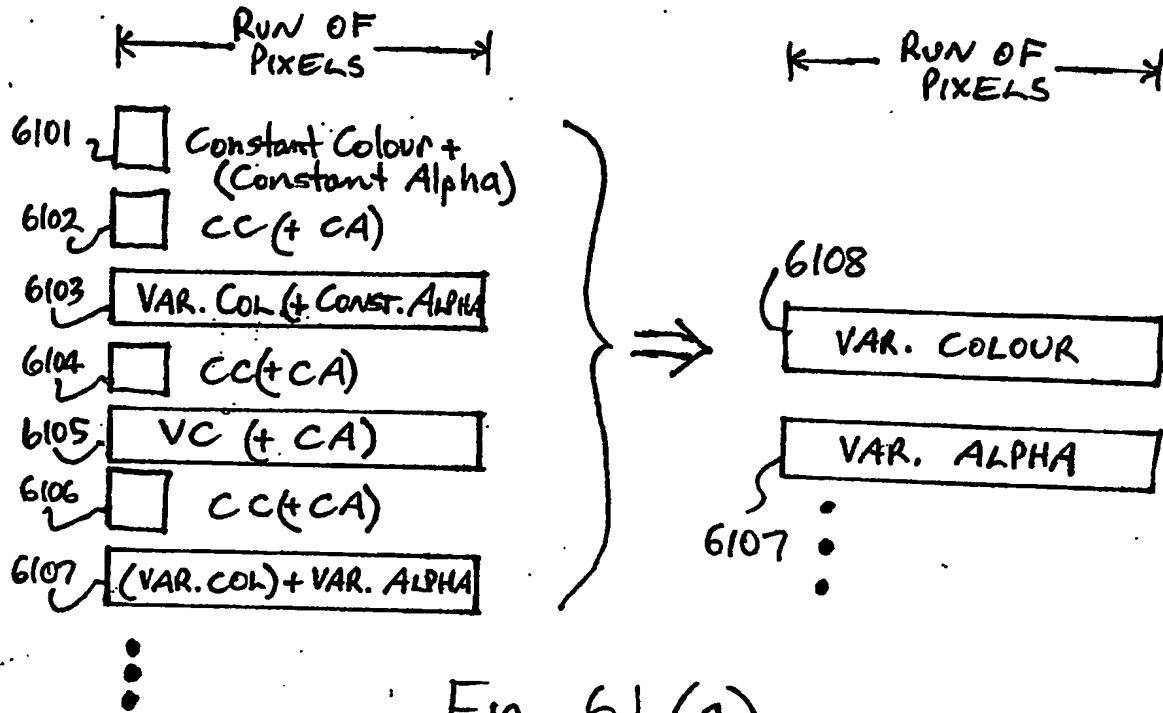 RUN OF
PIXELS
6101
Constant Colour +
(Constant Alpha)
6102
CC (+ CA)
6103
VAR. COL (+ CONST. ALPHA
6104
CC (+ CA)
6105
VC (+ CA)
6106
CC (+ CA)
6107
(VAR. COL) + VAR. ALPHA
RUN OF
PIXELS
6108
VAR. COLOUR
VAR. ALPHA
6107
Fig. 61 (a)